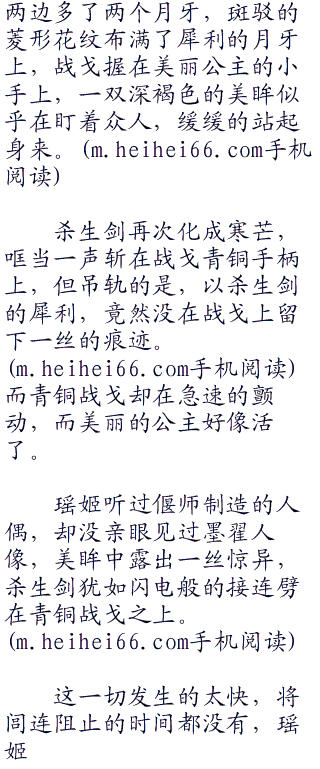 两边多了两个月牙，斑驳的
菱形花纹布满了犀利的月牙
上，战戈握在美丽公主的小
手上，一双深褐色的美眸似
乎在盯着众人，缓缓的站起
身来。(m.heihei66.com手机
阅读)
杀生剑再次化成寒芒，
哐当一声斩在战戈青铜手柄
上，但吊轨的是，以杀生剑
的犀利，竟然没在战戈上留
下一丝的痕迹。
(m.heihei66.com手机阅读)
而青铜战戈却在急速的颤
动，而美丽的公主好像活
了。
瑶姬听过偃师制造的人
偶，却没亲眼见过墨翟人
像，美眸中露出一丝惊异，
杀生剑犹如闪电般的接连劈
在青铜战戈之上。
(m.heihei66.com手机阅读)
这一切发生的太快，将
闾连阻止的时间都没有，瑶
姬